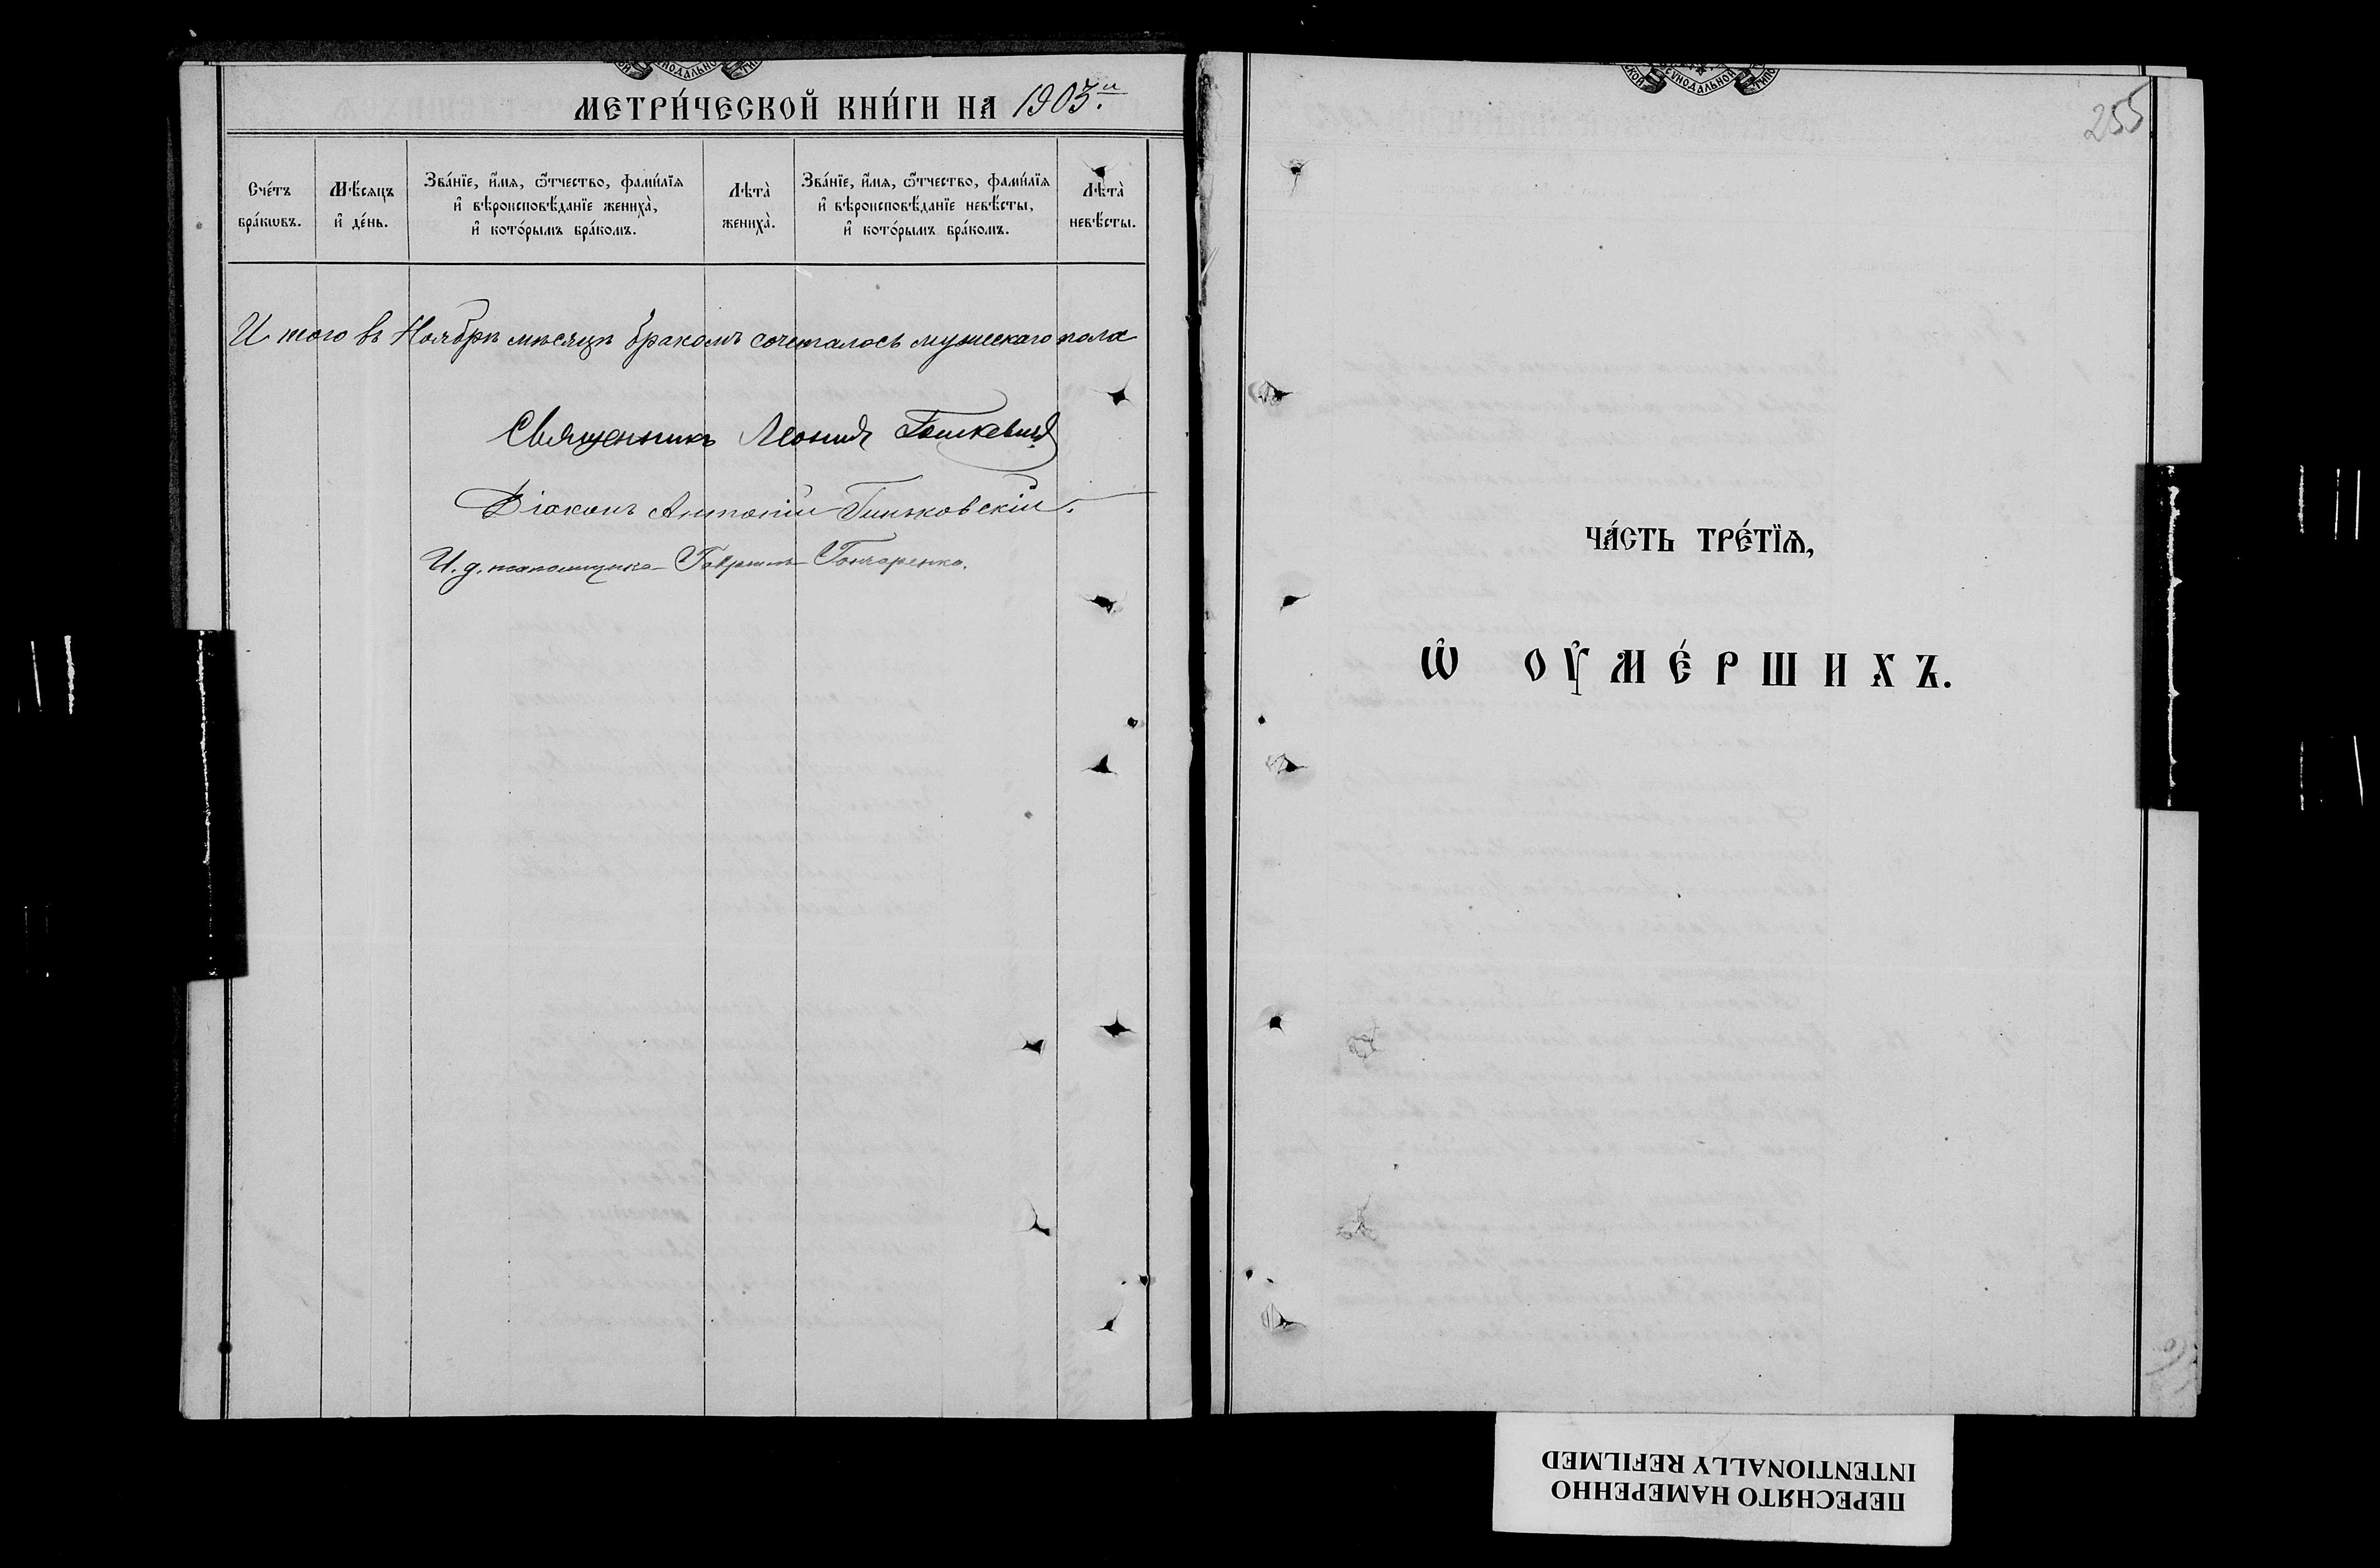 МЕТРИ́ЧЕСКОЙ КНИ́ГИ НА 1903й.
Сче́тъ бра́кѡвъ.
Мѣ́сяцъ и҆ де́нь.
Зва́нїе, и҆́мѧ, ѻ҆́тчество, фами́лїѧ и҆ вѣроисповѣ́данїе жениха̀, и҆ кото́рымъ бра́комъ.
Лѣта̀ жениха̀.
Зва́нїе, и҆́мѧ, ѻ҆́тчество, фами́лїѧ и҆ вѣроисповѣ́данїе невѣ́сты, и҆ кото́рымъ бра́комъ.
Лѣта̀ невѣ́сты.
И того въ Ноябрѣ мѣсяцѣ бракомъ сочеталось мужескаго пола
Священникъ Леонид
Діаконъ Антоній
И. д. псаломщика Гавріилъ Гончаренко.
255
ЧА́СТЬ ТРЕ́ТЇѦ,
Ѡ҆ ОУ҆МЕ́РШИХЪ.
ПЕРЕСНЯТО НАМЕРЕННО
INTENTIONALLY REFILMED